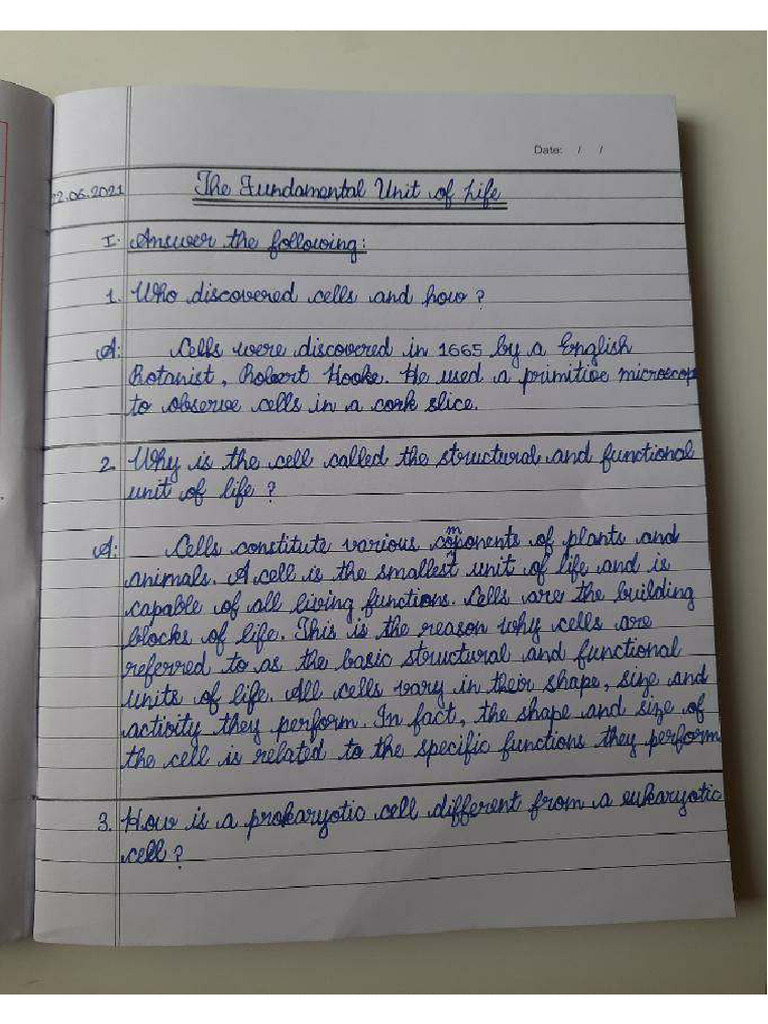 Date: / /
02.06.2021 The Fundamental Unit of Life
I. Answer the following:
1. Who discovered cells and how?
A: Cells were discovered in 1665 by a English
Botanist, Robert Hooke. He used a primitive microscope
to observe cells in a cork slice.
2. Why is the cell called the structural and functional
unit of life?
A: Cells constitute various components of plants and
animals. A cell is the smallest unit of life and is
capable of all living functions. Cells are the building
blocks of life. This is the reason why cells are
referred to as the basic structural and functional
units of life. All cells vary in their shape, size and
activity they perform. In fact, the shape and size of
the cell is related to the specific functions they perform
3. How is a prokaryotic cell different from a eukaryotic
cell?